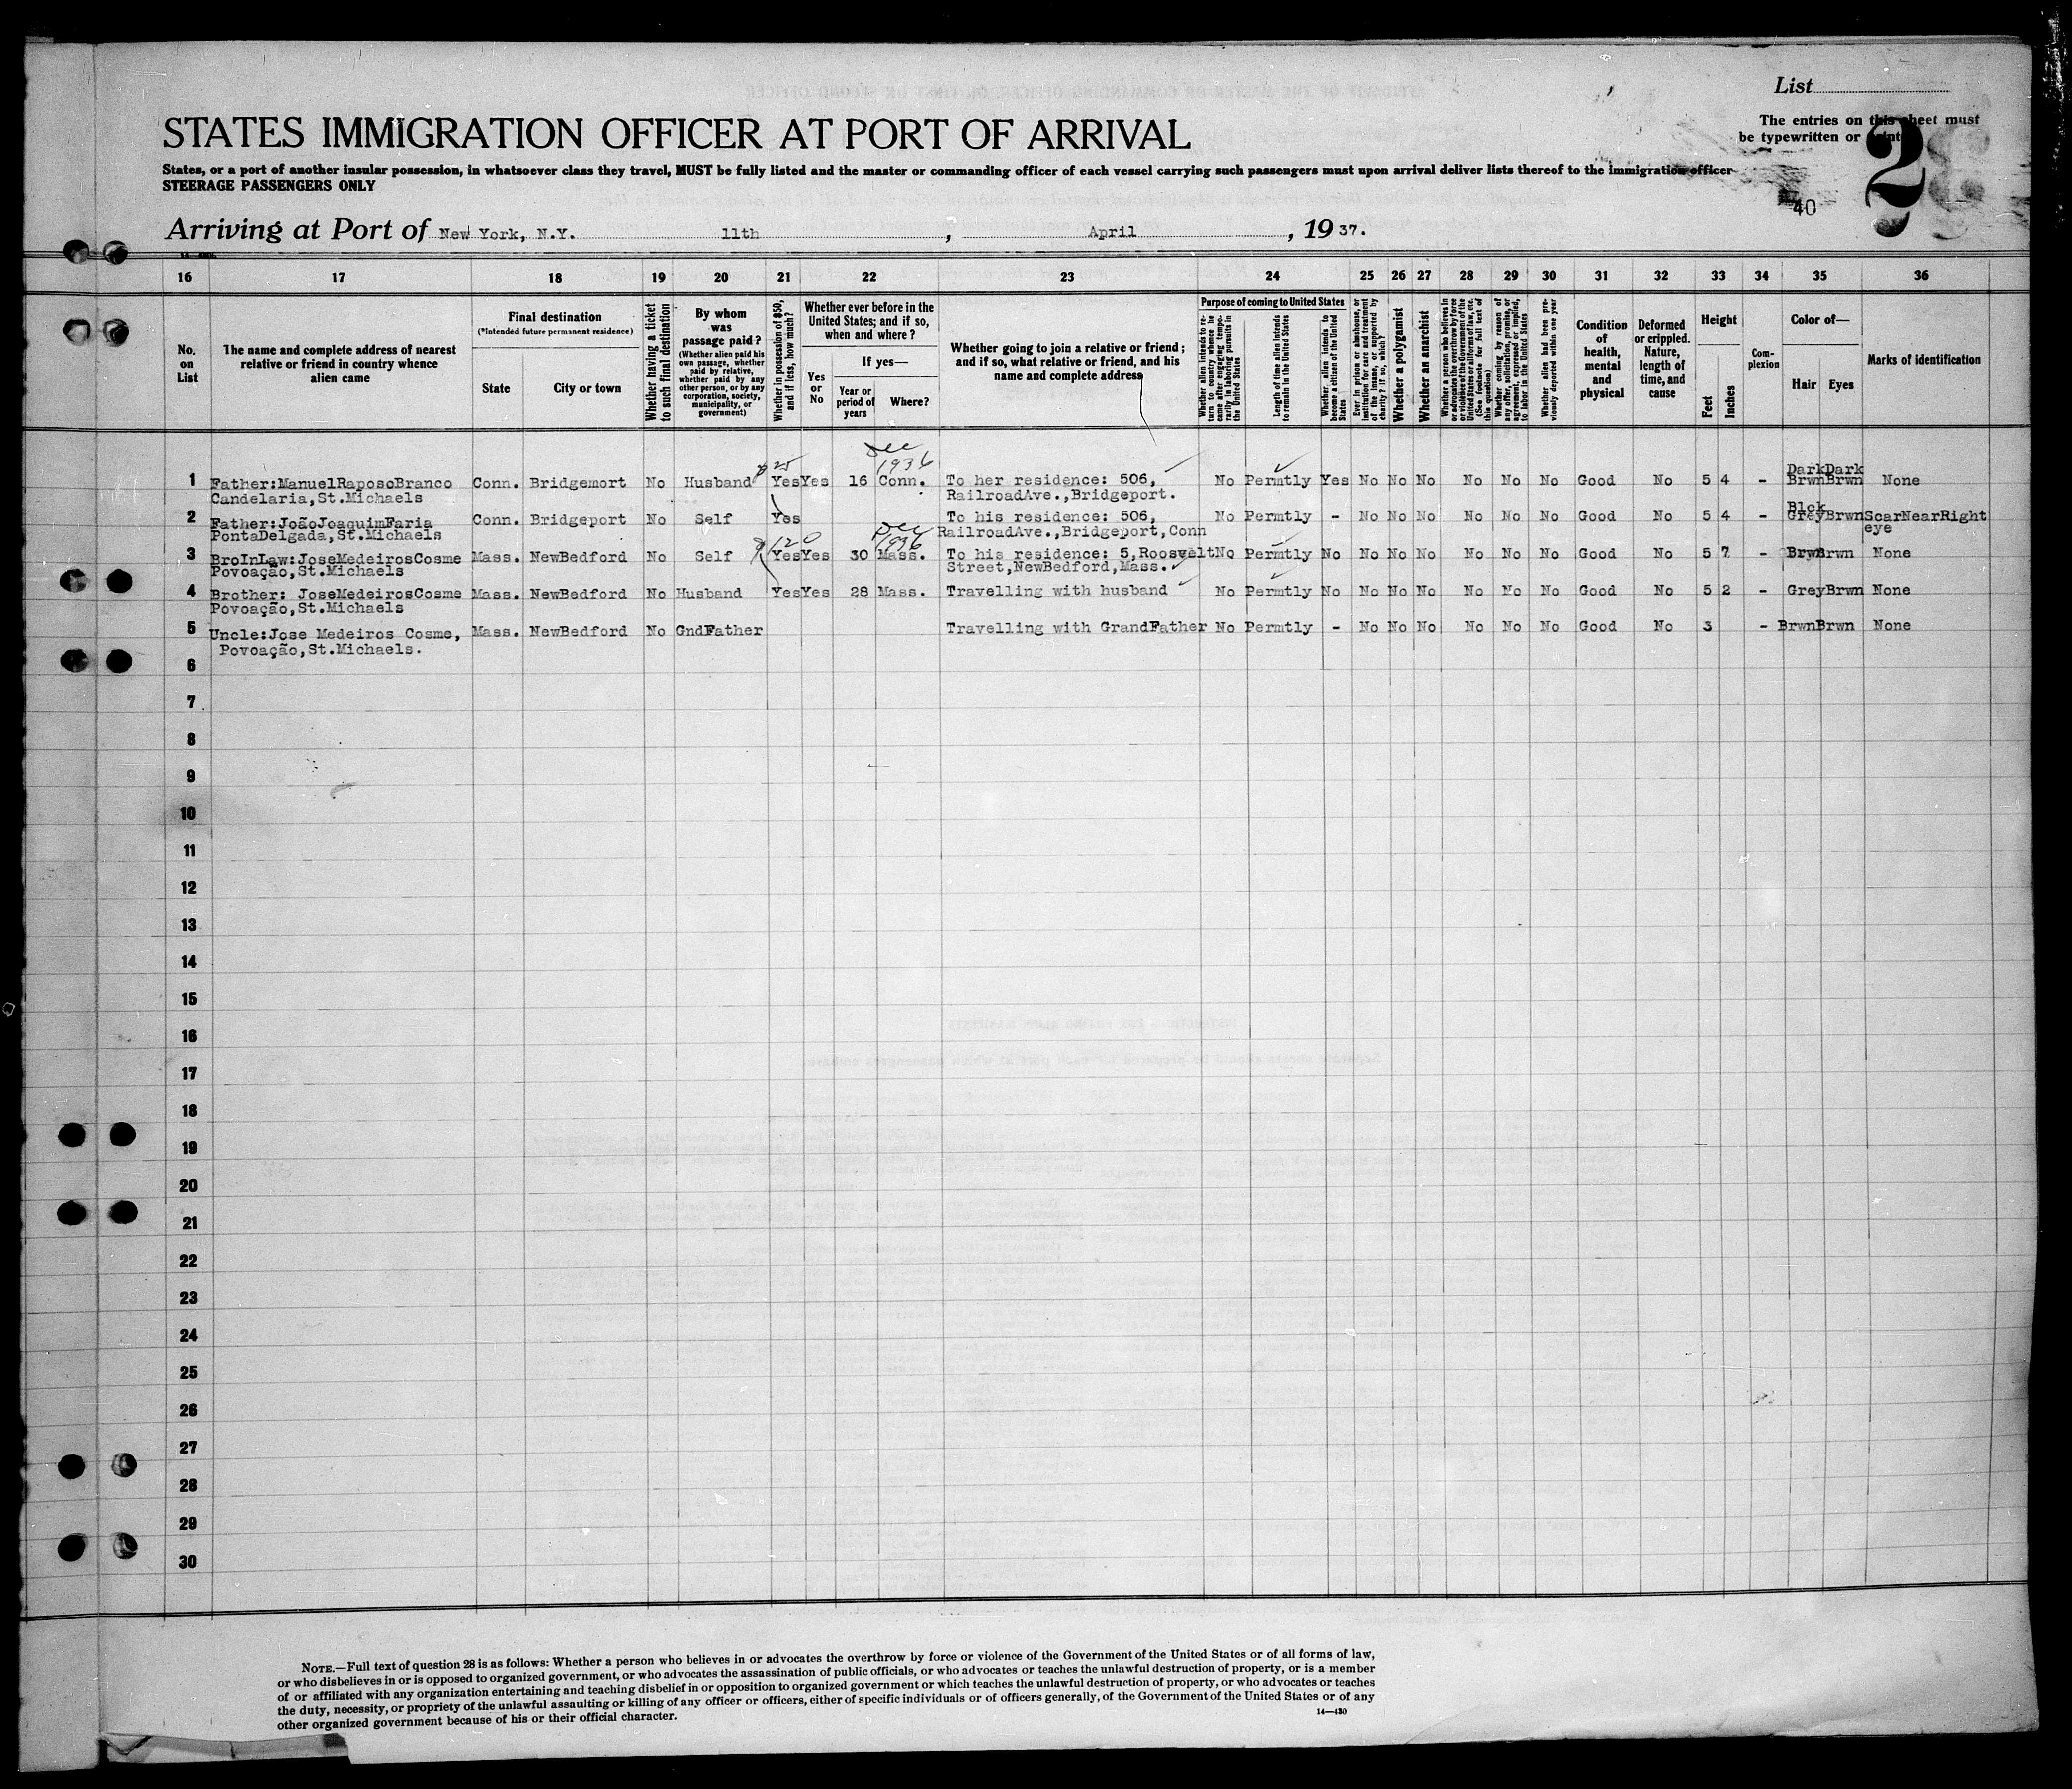 List
STATES IMMIGRATION OFFICER AT PORT OF ARRIVAL
The entries on this sheet must
be typewritten or
2
States, or a port of another insular possession, in whatsoever class they travel, MUST be fully listed and the master or commanding officer of each vessel carrying such passengers must upon arrival deliver lists thereof to the immigration officer
STEERAGE PASSENGERS ONLY
40
Arriving at Port of New York, N.Y. 11th , April , 19 37.
16 17 18 19 20 21 22 23 24 25 26 27 28 29 30 31 32 33 34 35 36
No. on List
The name and complete address of nearest relative or friend in country whence alien came
Final destination
(*Intended future permanent residence)
State City or town
Whether having a ticket to such final destination
By whom was passage paid?
(Whether alien paid his own passage, whether paid by relative, whether paid by any other person, or by any corporation, society, municipality, or government)
Whether in possession of $50, and if less, how much?
Whether ever before in the United States; and if so, when and where?
If yes—
Yes or No
Year or period of years
Where?
Whether going to join a relative or friend; and if so, what relative or friend, and his name and complete address
Purpose of coming to United States
Whether alien intends to return to country whence he came after engaging temporarily in laboring pursuits in the United States
Length of time alien intends to remain in the United States
Whether alien intends to become a citizen of the United States
Ever in prison or almshouse, or institution for care and treatment of the insane, or supported by charity? if so, which?
Whether a polygamist
Whether an anarchist
Whether a person who believes in or advocates the overthrow by force or violence of the Government of the United States or all forms of law, etc. (See footnote for full text of this question)
Whether coming by reason of any offer, solicitation, promise, or agreement, expressed or implied, to labor in the United States
Whether alien had been previously deported within one year
Condition of health, mental and physical
Deformed or crippled. Nature, length of time, and cause
Height
Feet Inches
Complexion
Color of—
Hair Eyes
Marks of identification
Dec
$25 1936 DarkDark
1 Father:ManuelRaposoBranco Conn. Bridgemort No Husband YesYes 16 Conn. To her residence: 506, No Permtly Yes No No No No No No Good No 5 4 - BrwnBrwn None
Candelaria,St.Michaels RailroadAve.,Bridgeport.
Blck
2 Father:JoãoJoaquimFaria Conn. Bridgeport No Self Yes To his residence: 506, No Permtly - No No No No No No Good No 5 4 - GreyBrwn ScarNearRight
PontaDelgada,St.Michaels RailroadAve.,Bridgeport,Conn eye
Dec
120 1936
3 BroInLaw:JoseMedeirosCosme Mass. NewBedford No Self YesYes 30 Mass. To his residence: 5,Roosvelt No Permtly No No No No No No No Good No 5 7 - BrwnBrwn None
Povoação,St.Michaels Street,NewBedford,Mass.
4 Brother: JoseMedeirosCosme Mass. NewBedford No Husband YesYes 28 Mass. Travelling with husband No Permtly No No No No No No No Good No 5 2 - GreyBrwn None
Povoação,St.Michaels
5 Uncle:Jose Medeiros Cosme, Mass. NewBedford No GndFather Travelling with GrandFather No Permtly - No No No No No No Good No 3 - BrwnBrwn None
Povoação,St.Michaels.
6
7
8
9
10
11
12
13
14
15
16
17
18
19
20
21
22
23
24
25
26
27
28
29
30
NOTE.—Full text of question 28 is as follows: Whether a person who believes in or advocates the overthrow by force or violence of the Government of the United States or of all forms of law,
or who disbelieves in or is opposed to organized government, or who advocates the assassination of public officials, or who advocates or teaches the unlawful destruction of property, or is a member
of or affiliated with any organization entertaining and teaching disbelief in or opposition to organized government or which teaches the unlawful destruction of property, or who advocates or teaches
the duty, necessity, or propriety of the unlawful assaulting or killing of any officer or officers, either of specific individuals or of officers generally, of the Government of the United States or of any
other organized government because of his or their official character.
14—430